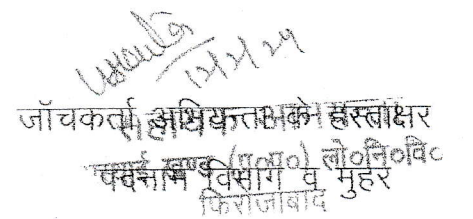 12/2/24
जाँचकर्ता अभियन्ता के हस्ताक्षर
सहायक अभियन्ता
पदनाम विभाग व मुहर
खण्ड (भ०प०) लो०नि०वि०
फिरोजाबाद